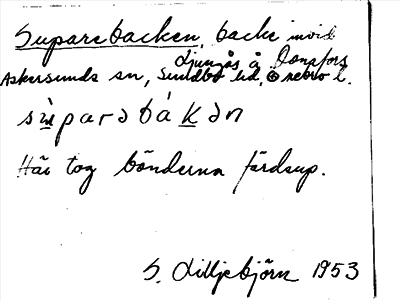 Suparebacken, backe invid
Ljungås å Dongfors
Askersunds sn, Sundbo hd, Örebro l.
sùparə bákən
Här tog bönderna färdsup.
S. Liljebjörn 1953